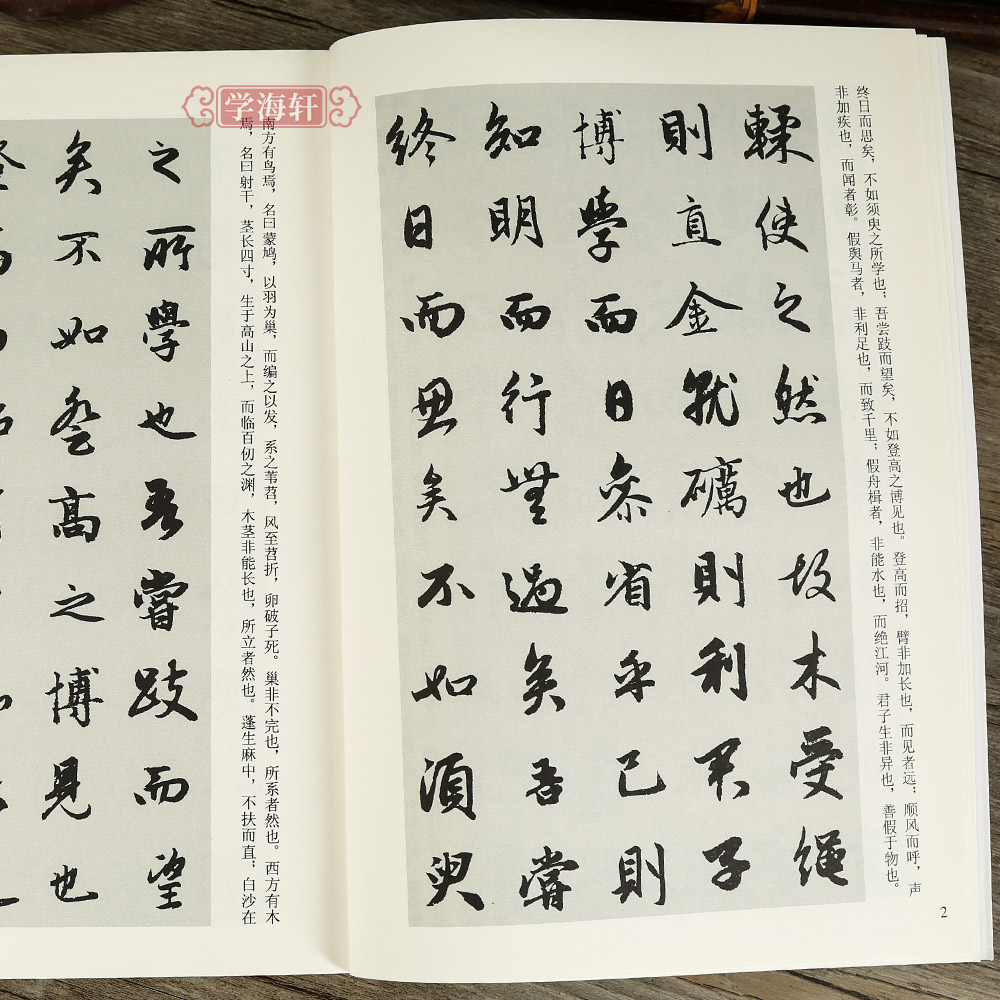 学海轩
终日而思矣，不如须臾之所学也；吾尝跂而望矣，不如登高之博见也。登高而招，臂非加长也，而见者远；顺风而呼，声
非加疾也，而闻者彰。假舆马者，非利足也，而致千里；假舟楫者，非能水也，而绝江河。君子生非异也，善假于物也。
輮使之然也故木受繩
則直金就礪則利君子
博學而日参省乎己則
知明而行無過矣吾嘗
終日而思矣不如須臾
2
南方有鸟焉，名曰蒙鸠，以羽为巢，而编之以发，系之苇苕，风至苕折，卵破子死。巢非不完也，所系者然也。西方有木
焉，名曰射干，茎长四寸，生于高山之上，而临百仞之渊，木茎非能长也，所立者然也。蓬生麻中，不扶而直；白沙在
之所學也吾嘗跂而望
矣不如登高之博見也